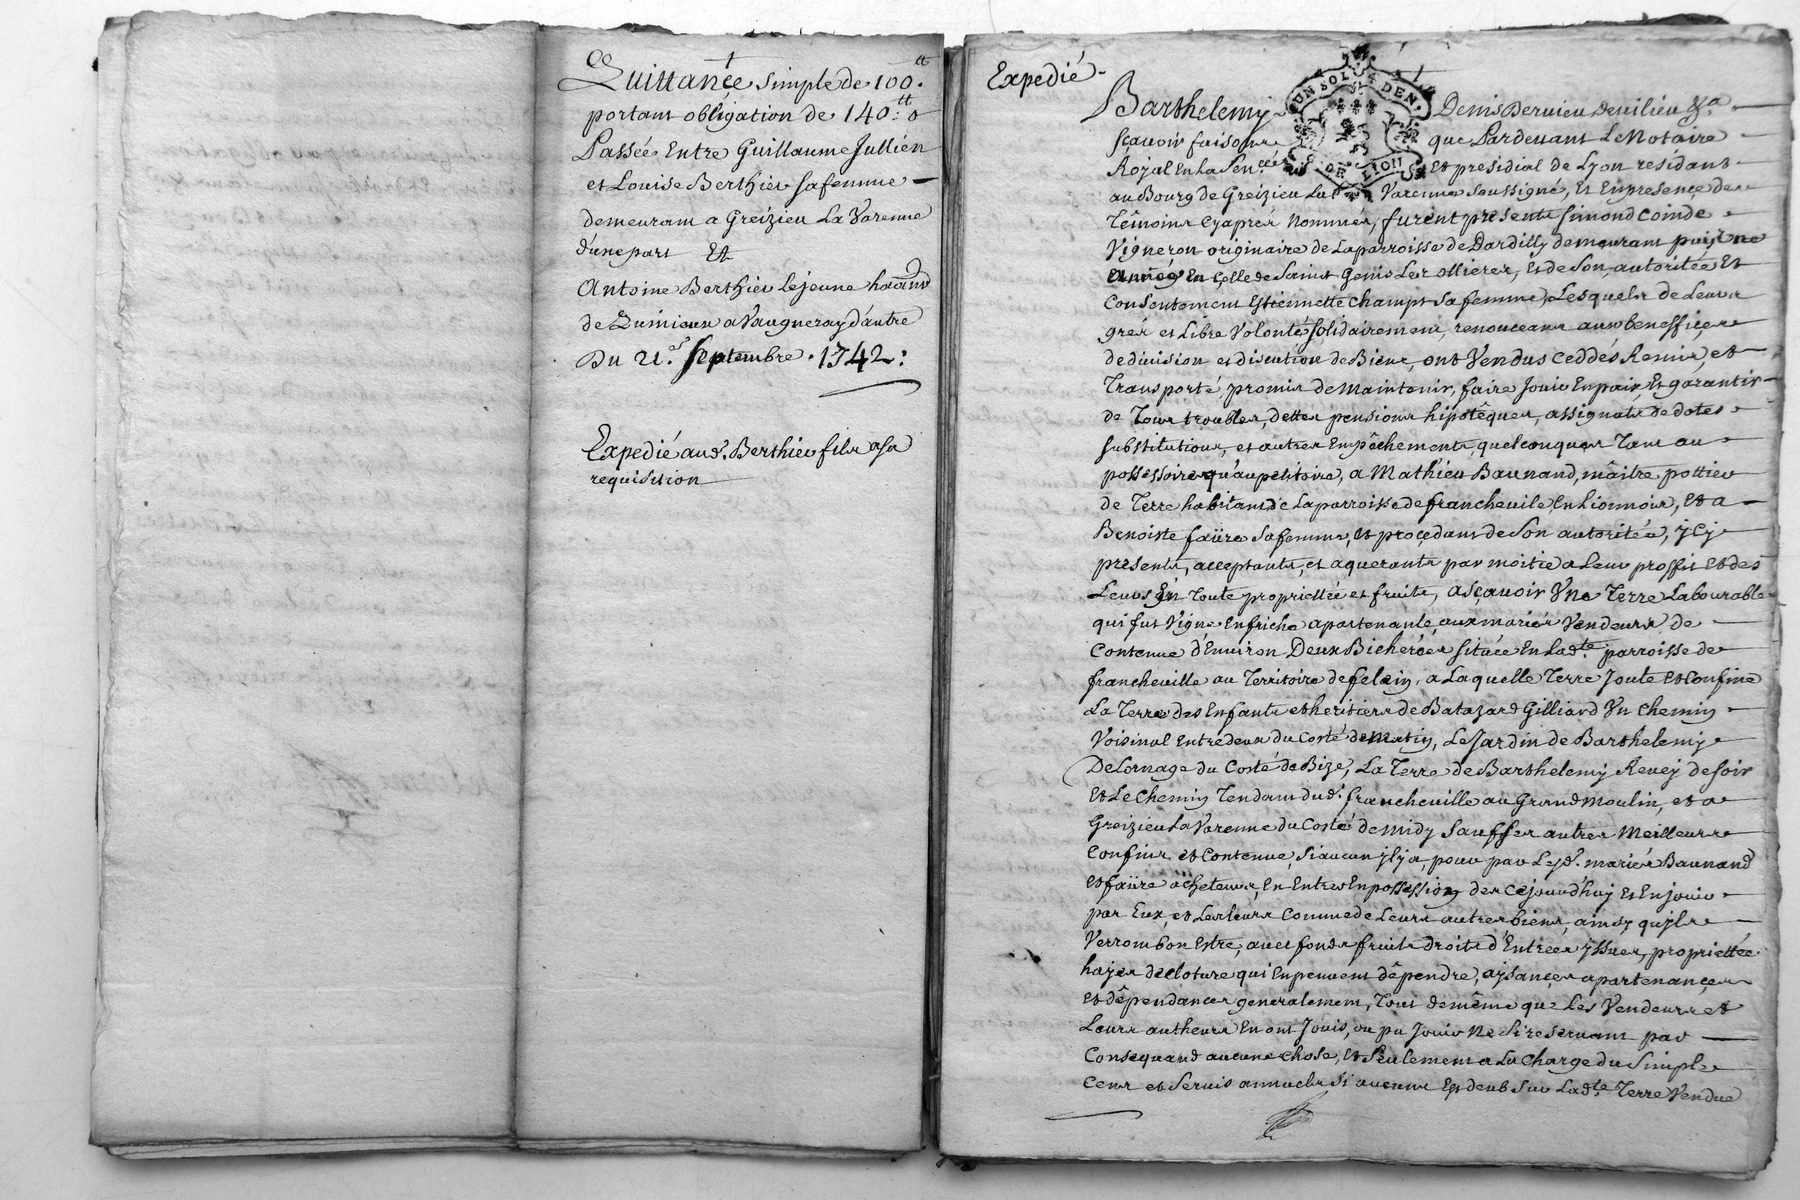 Quittance simple de 100.tt
portant obligation de 140:tt
Passée Entre Guillaume Jullien
et Louise Berthier sa femme
demeurant a Greizieu La Varenne
d'une part Et
Antoine Berthier le jeune habitant
de a Vaugneray d'autre
Du 21.e Septembre . 1742 :
Expedié aud. Berthier fils a sa
requisition
Expedié
UN SOL 4 DEN.
DE LION
Barthelemy Denis Dervieu de vilieu &a
sçavoir faisons que Pardevant Le Notaire
Royal En la Sen.cée Et presidial de Lyon residant
au Bourg de Greizieu La Varenne Soussigné, Et En presence des
Témoins Cyaprés Nommés, furent presents Simond Coinde
Vigneron originaire de La parroisse de Dardilly demeurant
En Celle de Saint Genis Les Ollieres, Et de Son autoritée Et
Consentement Estiennette Champt sa femme, Lesquels de Leurs
grés et Libre Volonté solidairement, renonceans aux beneffices
de division et discution de Biens, ont Vendus Ceddés Remis, et
Transporté, promis de Maintenir, faire Jouir En paix, Et garantir
de Tous troubles, dettes pensions hipotêques, assignats de dotes
substitutions, et autres Empêchements, quelconques Tant au
possessoire qu'au petitoire, a Mathieu Baunand, maître pottier
de Terre habitant de La parroisse de francheville, En Lionnois, Et a
Benoiste faüre sa femme, Et proçedant de Son autoritée, jCy
presents, acceptants, et aquerants par moitié a Leur proffit Et des
Leurs En Toute proprietée et fruits, asçavoir Une Terre Labourable
qui fut Vigne En friche apartenante, aux mariés Vendeurs de
Contenue d'Environ Deux Bicherées située En Lad.te parroisse de
francheville au Territoire de felein, a Laquelle Terre Joute Et Confine
La Terre des Enfants et heritiers de Batazard Gilliard Un Chemin
Voisinal Entredeux du Costé de Matin, Le Jardin de Barthelemy
DeLornage du Costé de Bize, La Terre de Barthelemy Revej de soir
Et Le Chemin Tendant dud. francheville au Grand Moulin, et a
Greizieu La Varenne du Costé de midy Sauff ses autres Meilleurs
Confins et Contenue, si aucun jl y a, pour par Lesd. mariés Baunand
et faüre acheteurs, En Entrer En possession des Cejourd'huy Et En jouir
par Eux, et Les leurs Comme de Leurs autres biens, ainsy qu'jls
Verront bon Estre, avec fonds fruits droits d'Entrées yssues, proprietée
hayes de Cloture qui En peuvent dêpendre, aysances apartenances
Et dêpendances generalement, Tout de même que Les Vendeurs et
Leurs autheurs En ont Jouis, ou pu Jouir Ne Si reservant par
Consequand aucune Chose, Et Seulement a La Charge du Simple
Cens et Servis annuels Si aucuns Est deub Sur Lad.te Terre Vendue